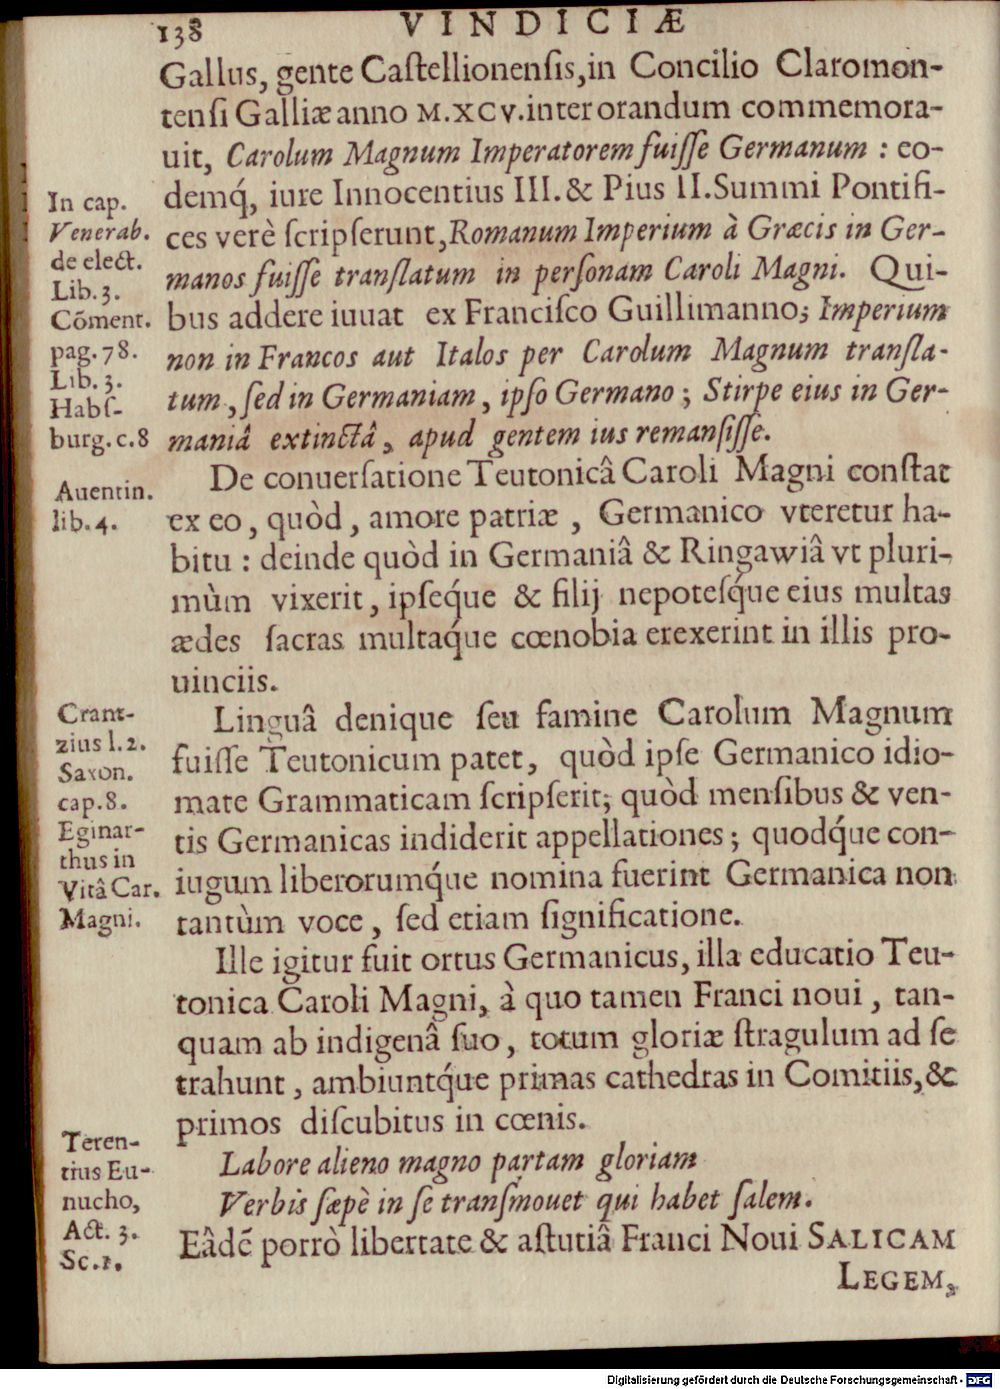 138 VINDICIÆ
Gallus, gente Caſtellionenſis, in Concilio Claromon-
tenſi Galliæ anno M.XCV. inter orandum commemora-
uit, Carolum Magnum Imperatorem fuiſſe Germanum : eo-
demq́, iure Innocentius III. & Pius II. Summi Pontifi-
ces verè ſcripſerunt, Romanum Imperium à Græcis in Ger-
manos fuiſſe tranſlatum in perſonam Caroli Magni. Qui-
bus addere iuuat ex Franciſco Guillimanno; Imperium
non in Francos aut Italos per Carolum Magnum tranſla-
tum, ſed in Germaniam, ipſo Germano ; Stirpe eius in Ger-
maniâ extinctâ, apud gentem ius remanſiſſe.
In cap.
Venerab.
de elect.
Lib. 3.
Cõment.
pag. 78.
Lib. 3.
Habſ-
burg. c. 8
De conuerſatione Teutonicâ Caroli Magni conſtat
ex eo, quòd, amore patriæ, Germanico vteretur ha-
bitu : deinde quòd in Germaniâ & Ringawiâ vt pluri-
mùm vixerit, ipſeq́ue & filij nepoteſq́ue eius multas
ædes ſacras multaq́ue cœnobia erexerint in illis pro-
uinciis.
Auentin.
lib. 4.
Linguâ denique ſeu famine Carolum Magnum
fuiſſe Teutonicum patet, quòd ipſe Germanico idio-
mate Grammaticam ſcripſerit; quòd menſibus & ven-
tis Germanicas indiderit appellationes; quodq́ue con-
iugum liberorumq́ue nomina fuerint Germanica non
tantùm voce, ſed etiam ſignificatione.
Crant-
zius l. 2.
Saxon.
cap. 8.
Eginar-
thus in
Vitâ Car.
Magni.
Ille igitur fuit ortus Germanicus, illa educatio Teu-
tonica Caroli Magni, à quo tamen Franci noui, tan-
quam ab indigenâ ſuo, totum gloriæ ſtragulum ad ſe
trahunt, ambiuntq́ue primas cathedras in Comitiis, &
primos diſcubitus in cœnis.
Labore alieno magno partam gloriam
Verbis ſæpè in ſe tranſmouet qui habet ſalem.
Teren-
tius Eu-
nucho,
Act. 3.
Sc. 1.
Eâdẽ porrò libertate & aſtutiâ Franci Noui SALICAM
LEGEM,
Digitalisierung gefördert durch die Deutsche Forschungsgemeinschaft - DFG